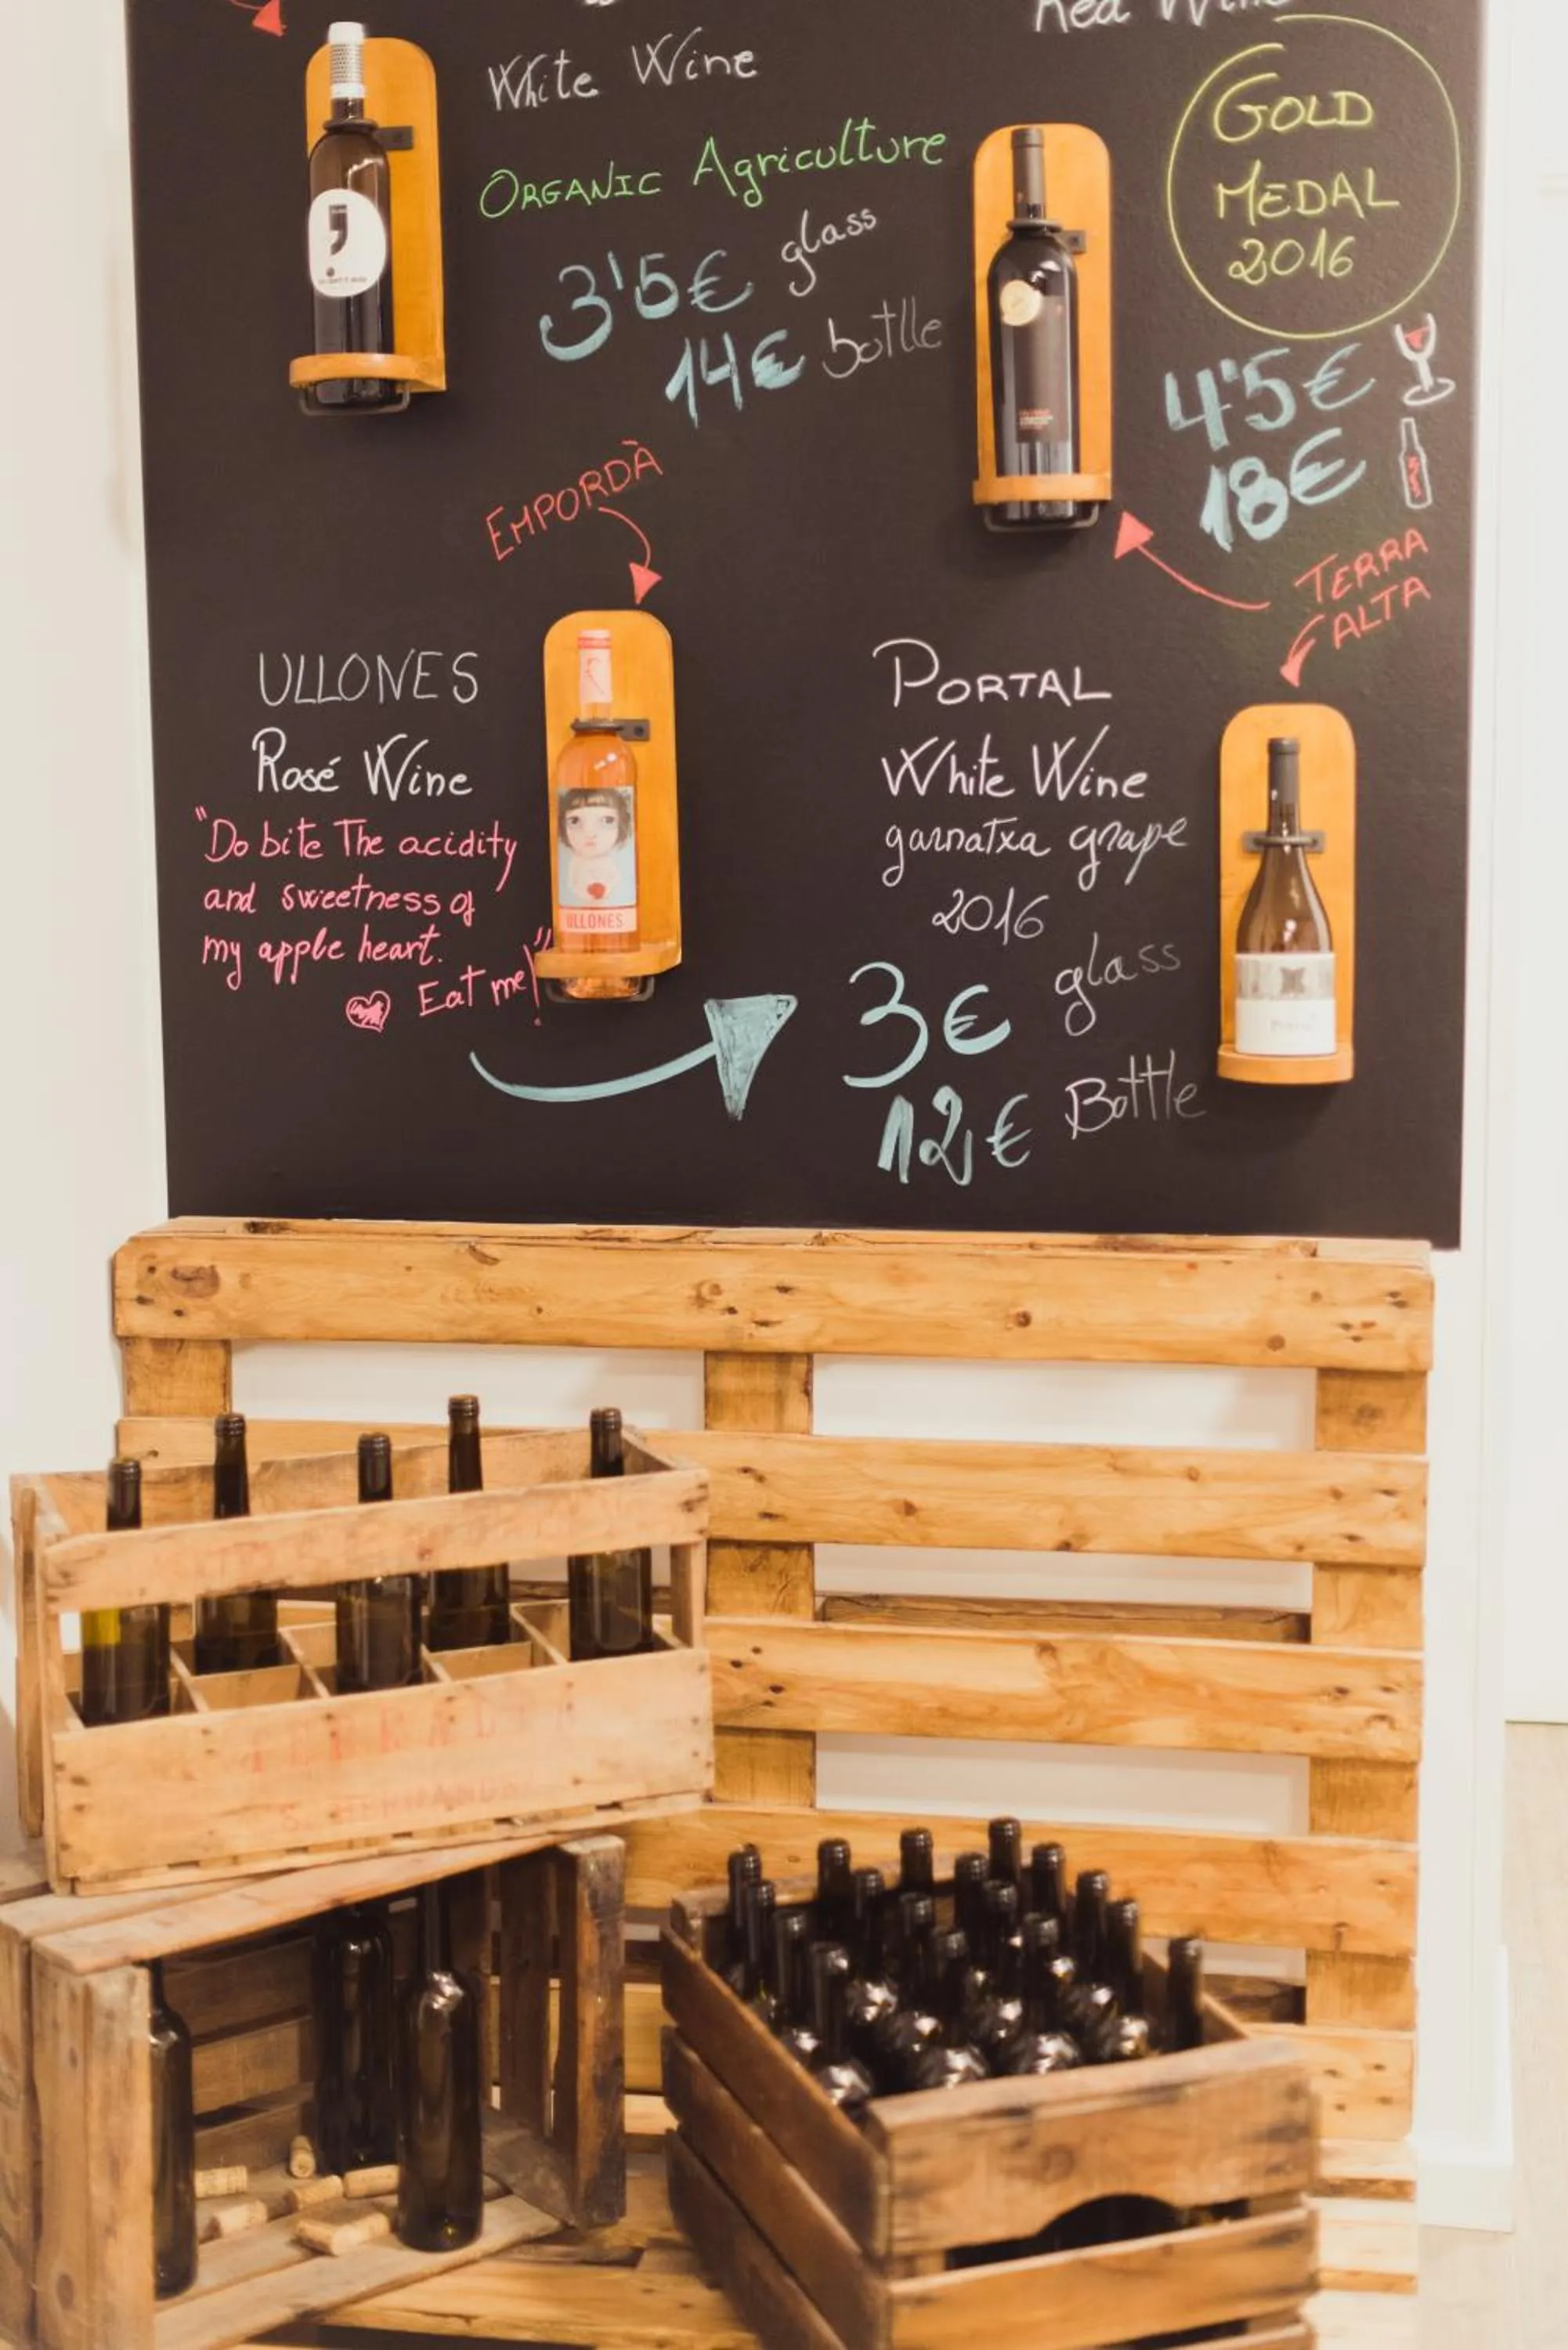 White Wine
ORGANIC Agriculture
3'5€ glass
14€ botlle
Red Wine
GOLD
MEDAL
2016
4'5€
18€
TERRA
ALTA
EMPORDÀ
ULLONES
Rosé Wine
"Do bite The acidity
and sweetness of
my apple heart.
Eat me!"
ULLONES
PORTAL
White Wine
garnatxa grape
2016
3€ glass
12€ Bottle